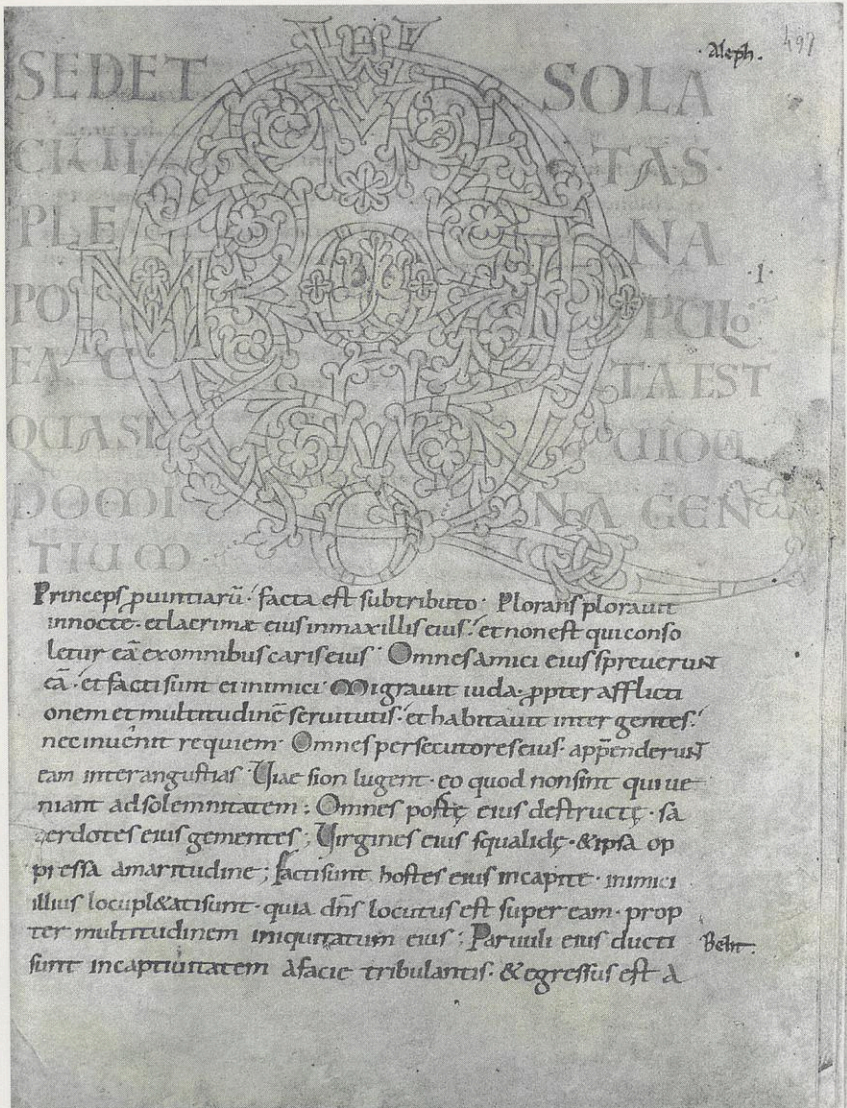 Aleph. 497
SEDET SOLA
CIUI TAS
PLE NA
PO PULO
FAC TA EST
QUASI UIDUA
DOMI NA GEN
TIUM
·I·
Princeps ꝓuintiarū· facta est subtributo· Plorans plorauit
innocte· etlacrimæ eius inmaxillis eius· et non est qui conso
letur eā exomnibus caris eius· Omnes amici eius spreuerunt
eā· et facti sunt ei inimici Migrauit iuda· ꝓpter afflicti
onem et multitudinē seruitutis· et habitauit inter gentes·
nec inuenit requiem· Omnes persecutores eius· apprenderunt
eam interangustias Uiae sion lugent· eo quod nonsint qui ue
niant adsolemnitatem; Omnes postę eius destructę· sa
cerdotes eius gementes; Uirgines eius squalidę· &ipsa op
pressa amaritudine; factisunt hostes eius incapite· inimici
illius locupl&atisunt· quia dn̄s locutus est super eam· prop
ter multitudinem iniquitatum eius; Paruuli eius ducti Beht.
sunt incaptiuitatem afacie tribulantis· &egressus est a